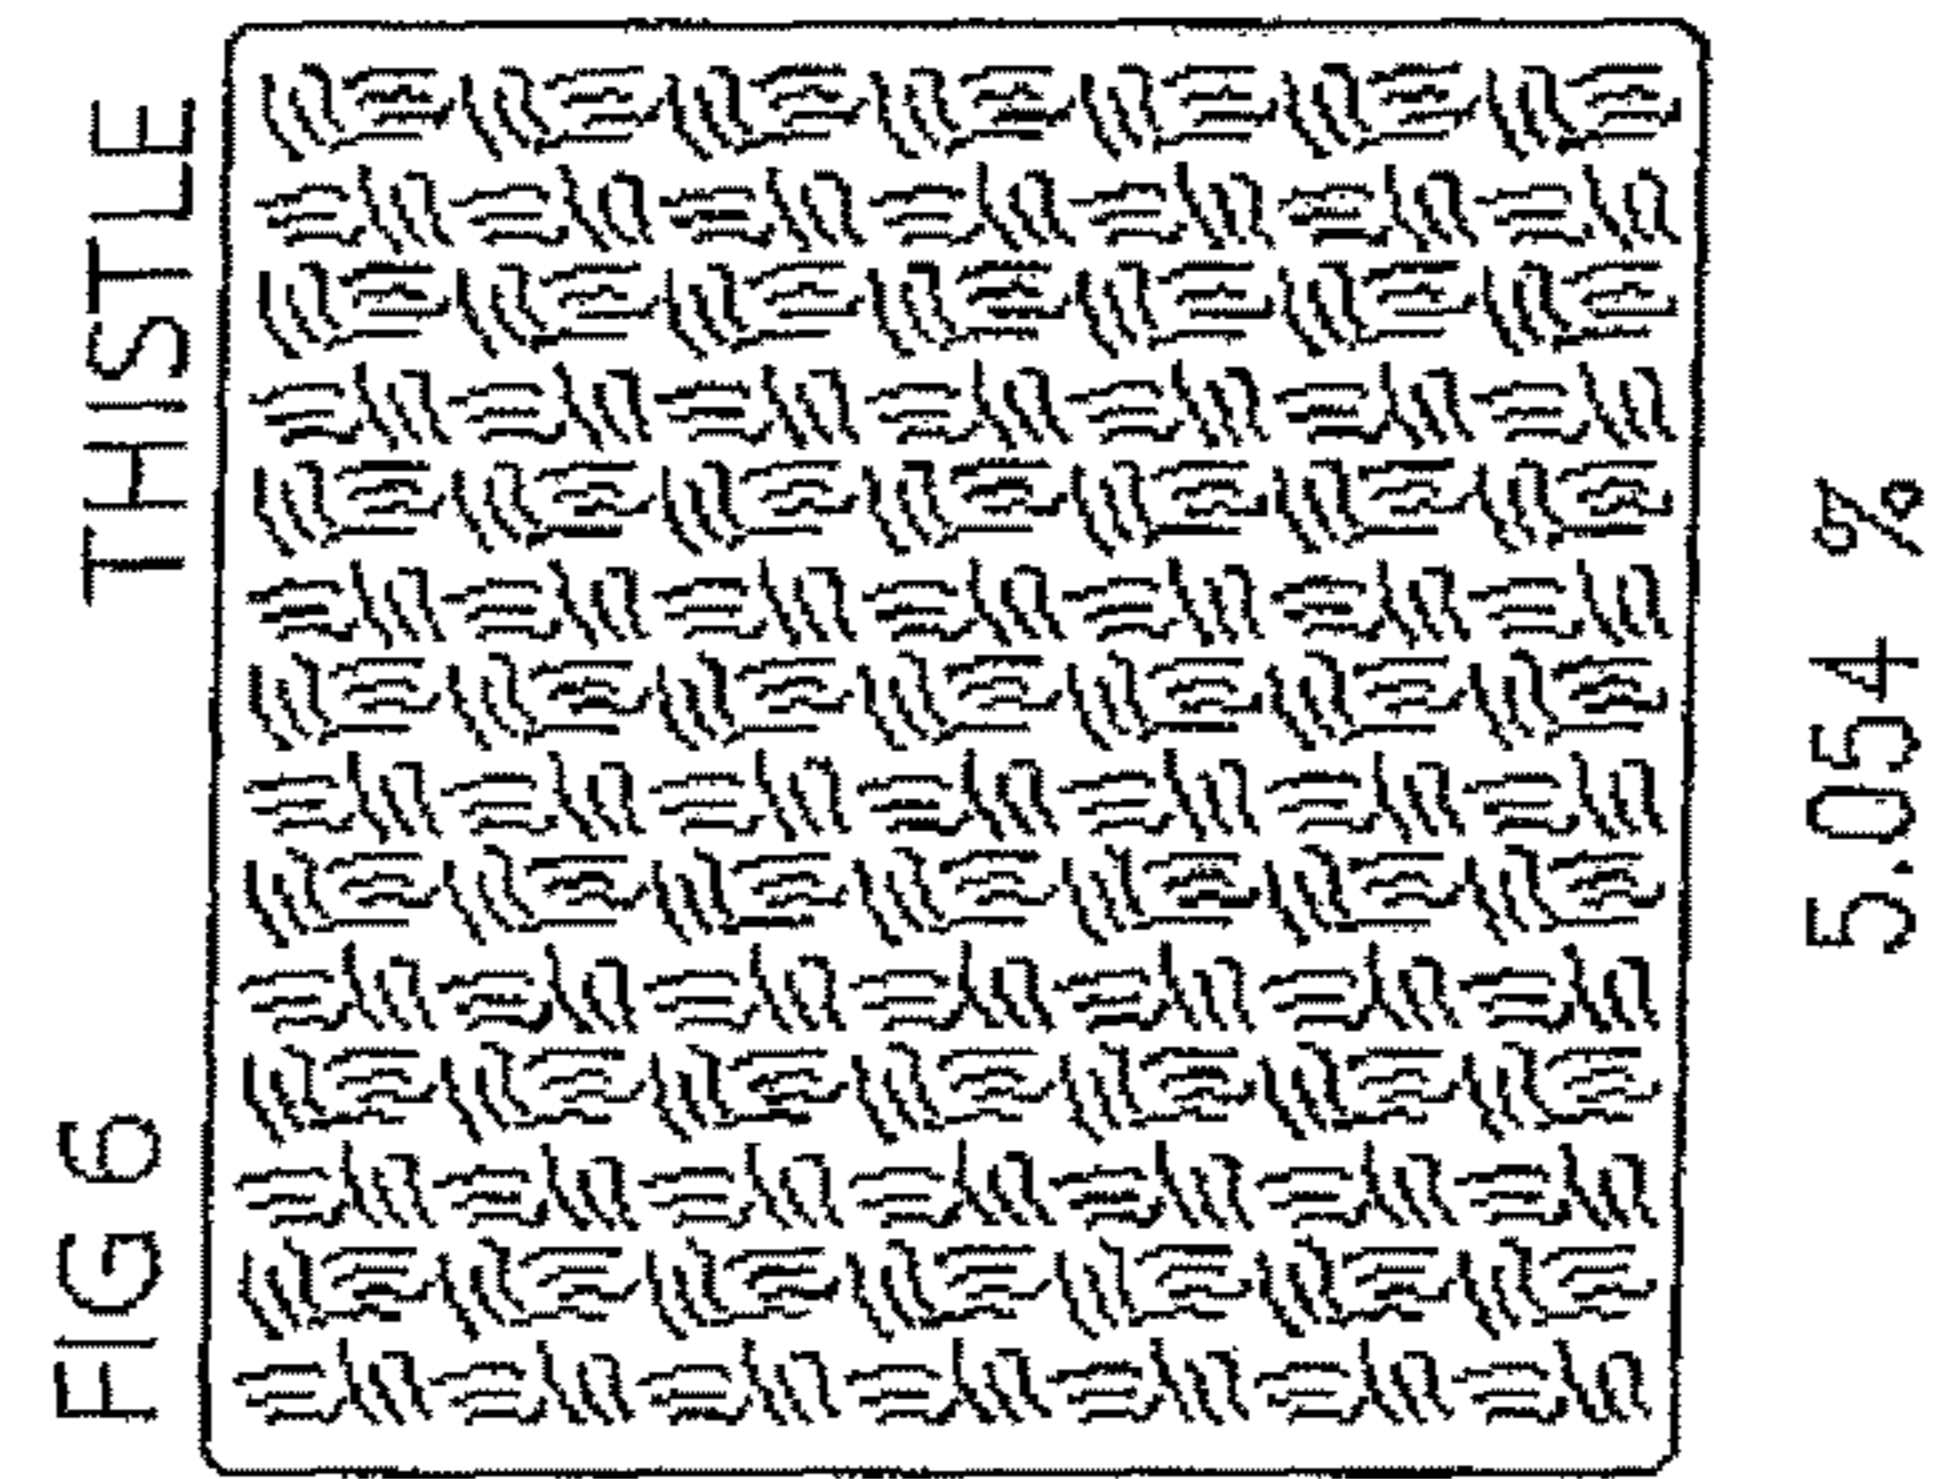 FIG 6
THISTLE
5.054 %